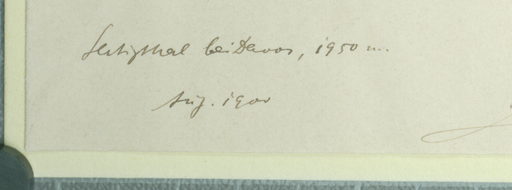 Sertigthal bei Davos, 1950 m.
Aug. 1900